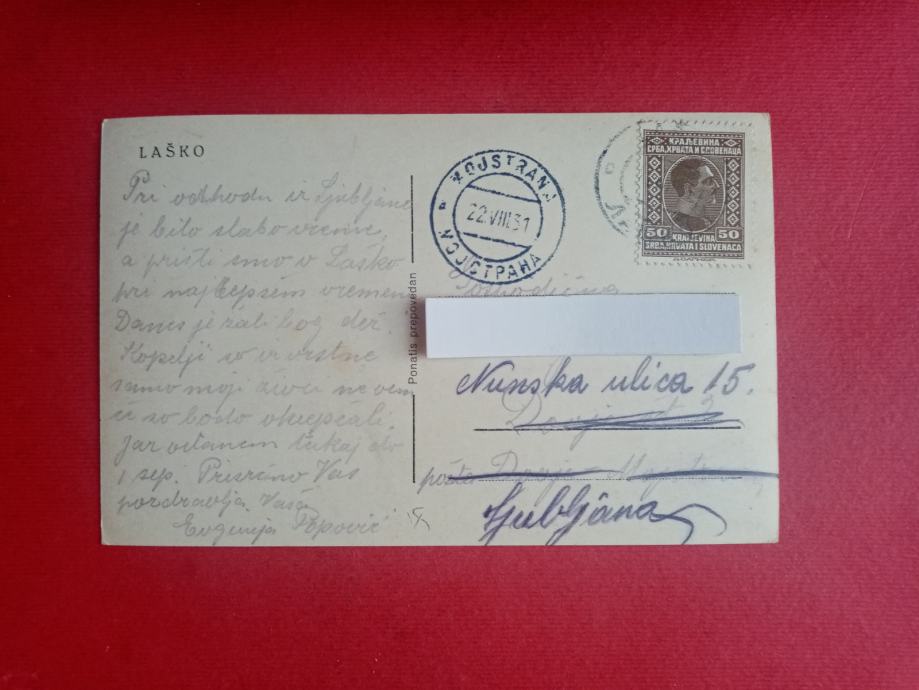 LAŠKO
Pri odhodu iz Ljubljane
je bilo slabo vreme,
a prišli smo v Laško
pri najlepšem vremenu
Danes je žali bog dež.
Kopelji so izvrstne
samo moji živci ne vem
če se bodo okrepčali.
Jaz ostanem tukaj do
1 sep. Prisrčno Vas
pozdravlja Vaša
Evgenija Popović
Ponatis prepovedan
MOJSTRANA
22.VIII.31
МОЈСТРАНА
КРАЉЕВИНА
СРБА, ХРВАТА И СЛОВЕНАЦА
50 KRALJEVINA 50
SRBA, HRVATA I SLOVENACA
Nunska ulica 15.
Dovje
pošta Dovje Mojstrana
Ljubljana